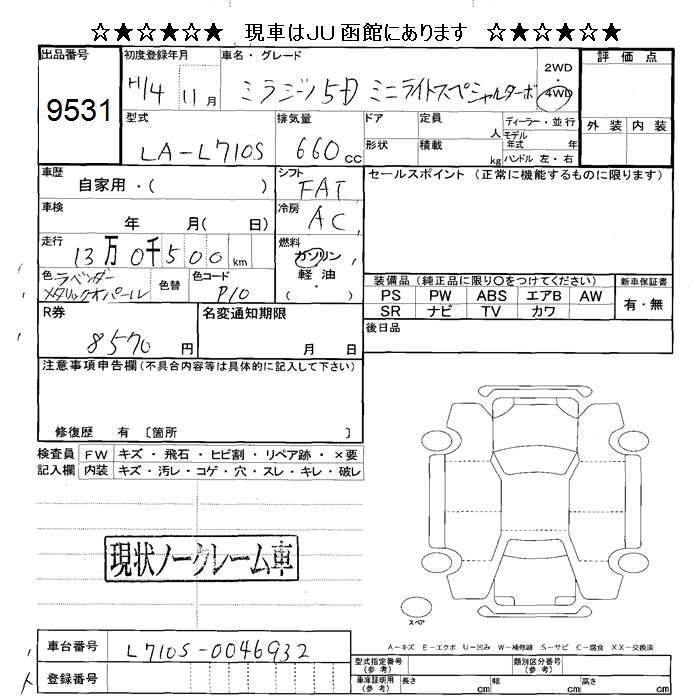 ☆★☆★☆★ 現車はJU函館にあります ☆★☆★☆★
出品番号 初度登録年月 車名・グレード 評価点
9531 H14 11月 ミラジーノ5D ミニライトスペシャルターボ 2WD 4WD
型式 排気量 ドア 定員 人 ディーラー・並行 外装 内装
LA-L710S 660cc 形状 積載 kg モデル年式 年 ハンドル 左・右
車歴 シフト セールスポイント(正常に機能するものに限ります)
自家用・( ) FAT
車検 冷房
年 月( 日) AC
走行 燃料
13万0千500km ガソリン 軽油 ( )
色 ラベンダーメタリックオパール 色替 色コード P10
装備品(純正品に限り〇をつけてください) 新車保証書
PS PW ABS エアB AW 有・無
SR ナビ TV カワ
R券 名変通知期限 後日品
8570円 月 日
注意事項申告欄(不具合内容等は具体的に記入して下さい)
修復歴 有 〔箇所 〕
検査員 FW キズ・飛石・ヒビ割・リペア跡・×要
記入欄 内装 キズ・汚レ・コゲ・穴・スレ・キレ・破レ
現状ノークレーム車
スペア
A-キズ E-エクボ U-凹み W-補修跡 S-サビ C-腐食 XX-交換済
車台番号 L710S-0046932
型式指定番号(参考) 類別区分番号(参考)
登録番号 車庫証明用(参考) 長さ cm 幅 cm 高さ cm